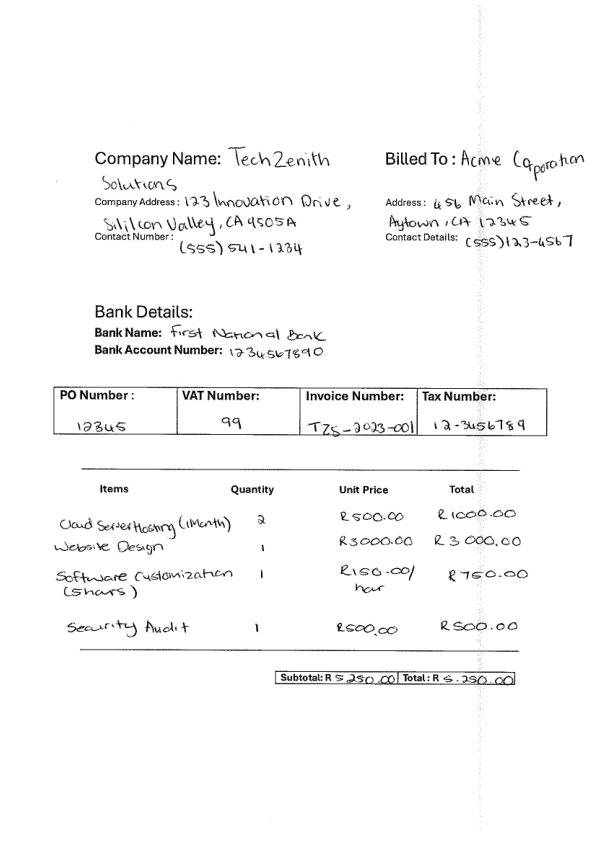 Company Name: TechZenith
Solutions
Company Address: 123 Innovation Drive,
Sililcon Valley, CA 9505A
Contact Number:
(555) 541-1234
Billed To: Acme Corporation
Address: 456 Main Street,
Aytown, CA 12345
Contact Details: (555)123-4567
Bank Details:
Bank Name: First National Bank
Bank Account Number: 1234567890
PO Number: VAT Number: Invoice Number: Tax Number:
12345 99 TZS-2023-001 12-3456789
Items Quantity Unit Price Total
Cloud Server Hosting (1 Month) 2 R500.00 R1000.00
Website Design 1 R3000.00 R3 000.00
Software Customization 1 R150.00/ R750.00
(5hours) hour
Security Audit 1 R500.00 R500.00
Subtotal: R 5 250.00 Total: R 5.250.00